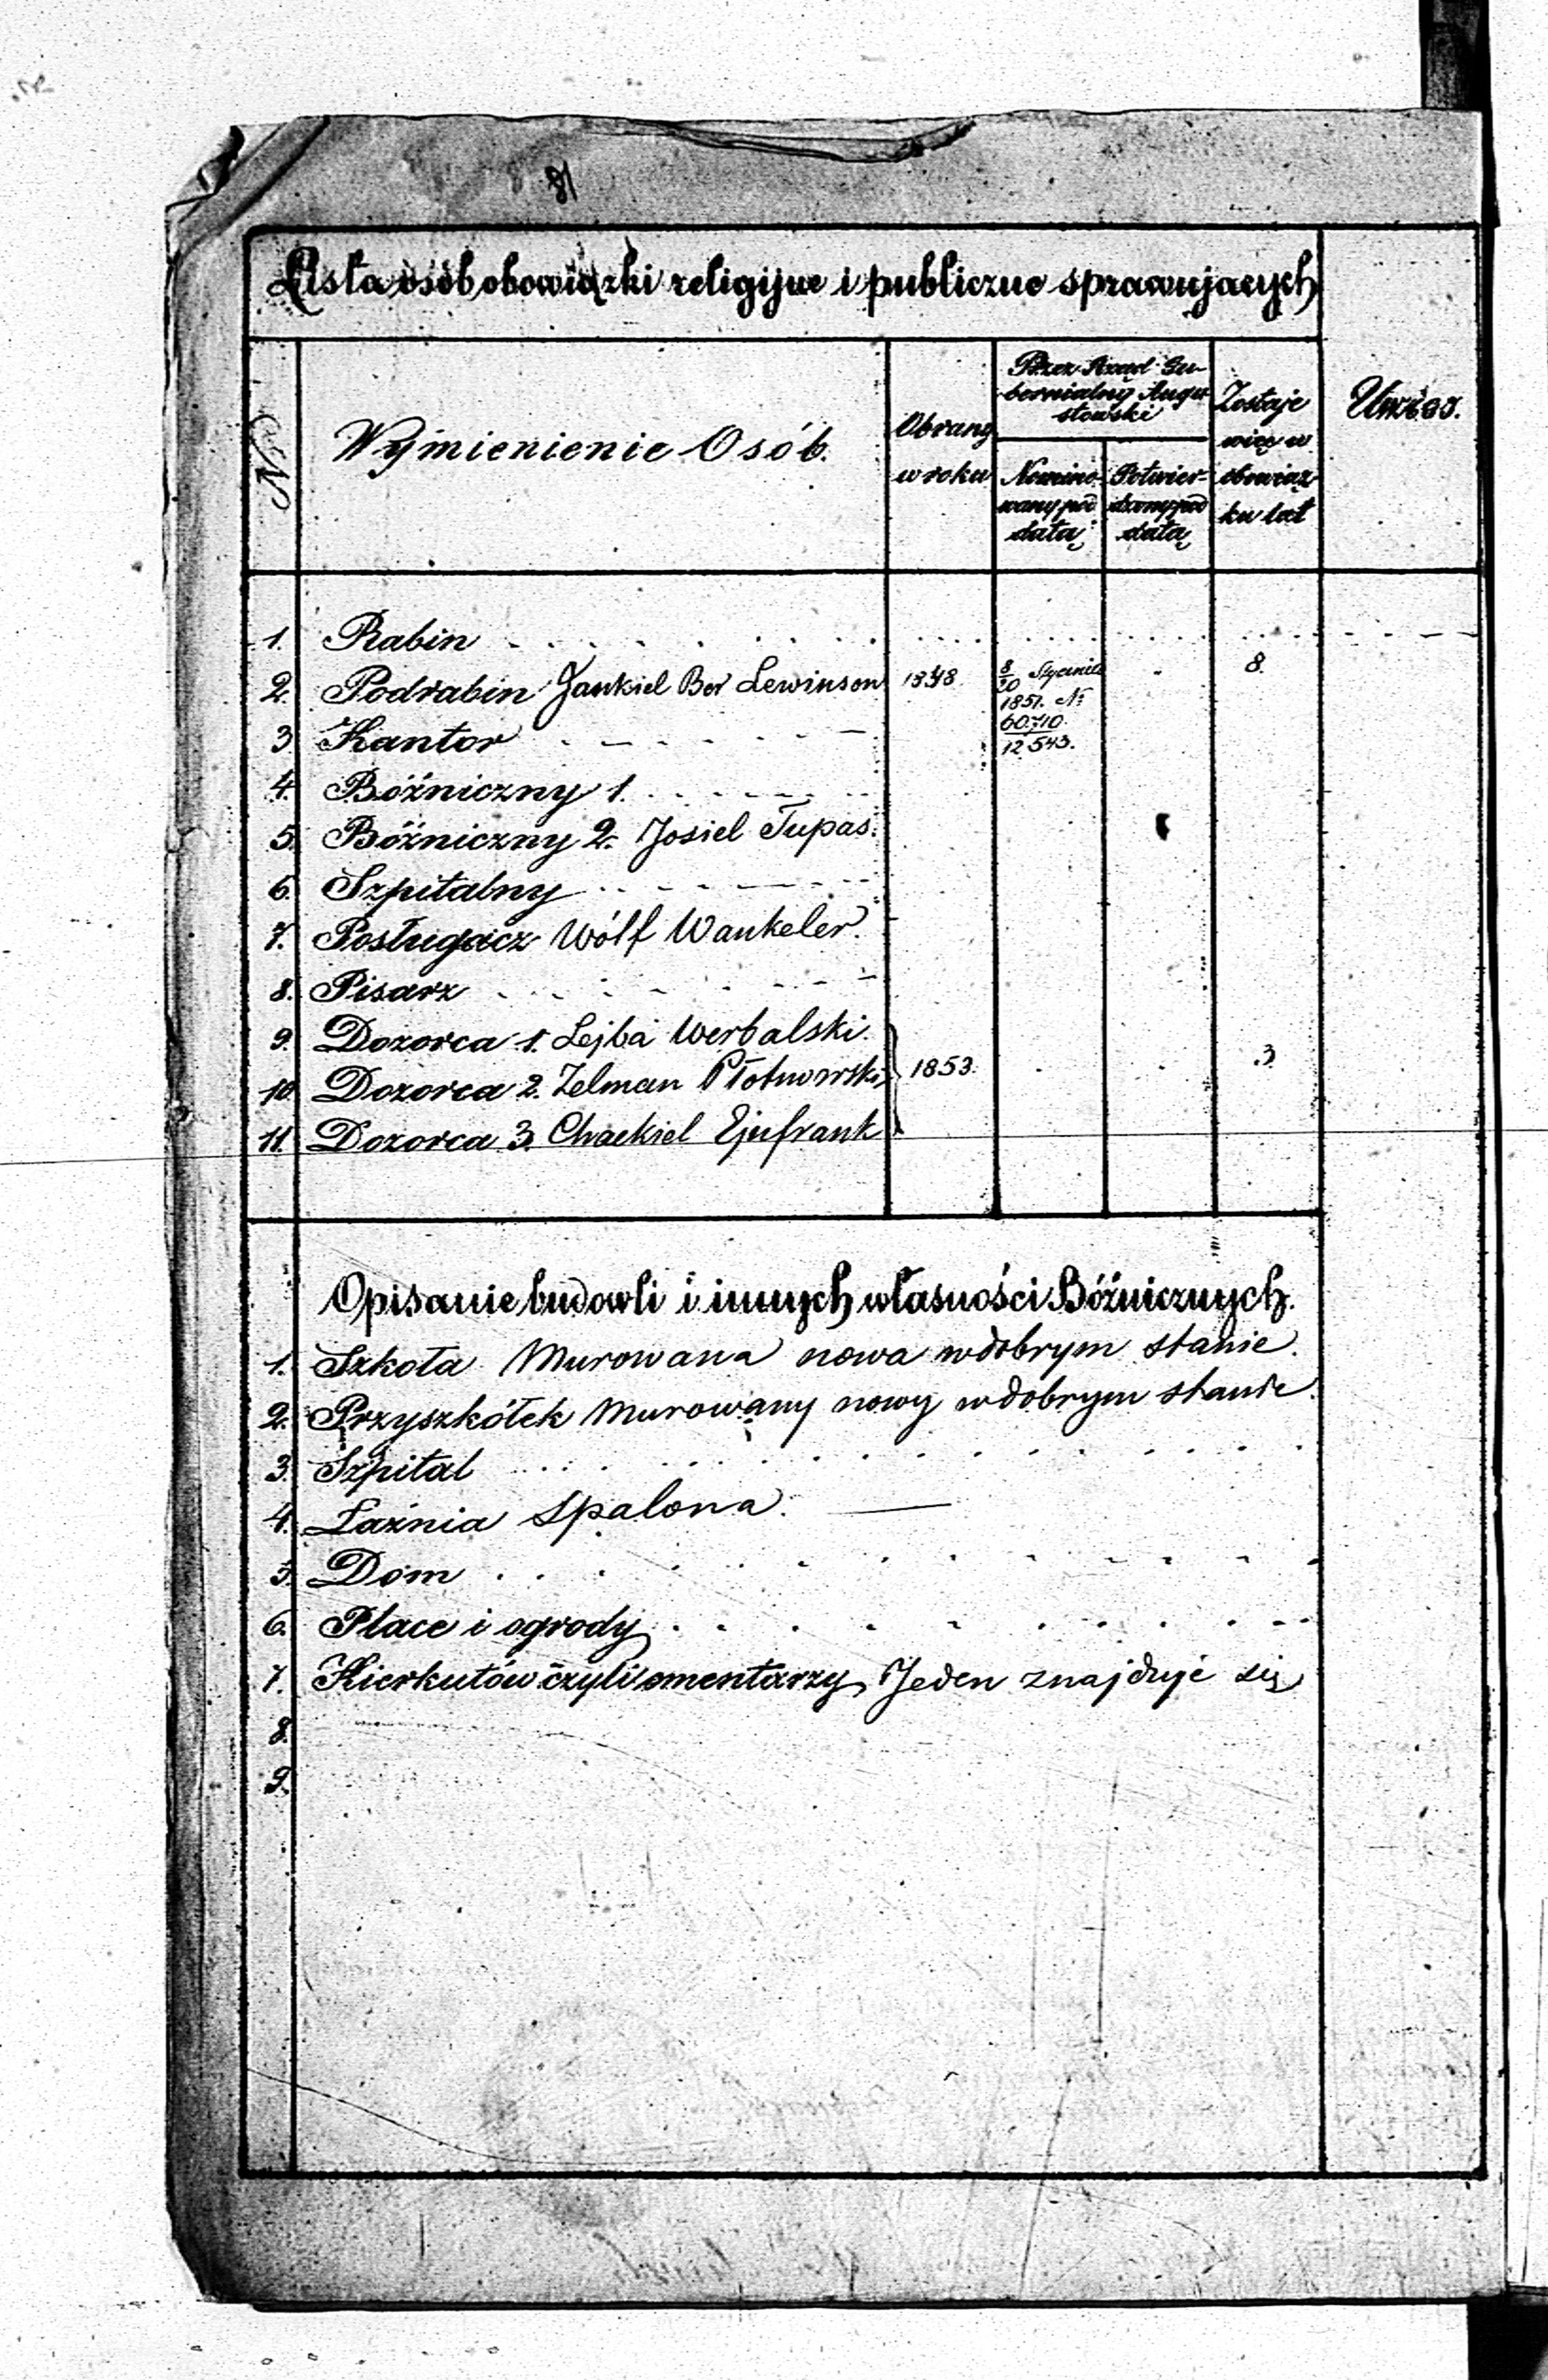 81
Lista osób obowiązki religijne i publiczne sprawujących
N
Wyjmienienie Osób.
Obrany
w roku
Przez Rząd Gu-
bernialny Augu
stowski
Nomino-
wany pod
datą
Potwier-
dzony pod
datą
Zostaje
więc w
obowiąz
ku lat
Uwag.
1. Rabin
2. Podrabin Jankiel Ber Lewinson 1848 8/20 Stycznia 8.
1851. N
60.710.
12.543.
3 Kantor
4. Bóżniczny 1.
5. Bóżniczny 2. Josiel Tupas.
6. Szpitalny
7. Posługacz Wólf Wankeler.
8. Pisarz
9. Dozorca 1. Lejba Werbalski.
10 Dozorca 2. Zelman 1853. 3
11. Dozorca 3. Chackiel Ejufrank
Opisanie budowli i innych własności Bóżnicznych.
1. Szkoła Murowana nowa w dobrym stanie.
2. Przyszkółek Murowany nowy w dobrym stanie.
3. Szpital
4. Łaźnia Spalona.
5. Dom
6. Place i ogrody
7. Kierkutów czyli smentarzy Jeden znajduje się
8.
9.